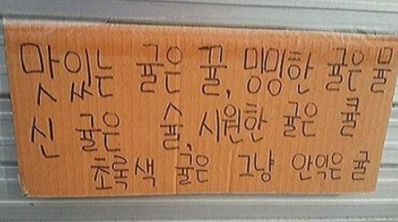 맛있는 귤은 꿀, 밍밍한 귤은 물
진 귤은 술, 시원한 귤은 쿨
초록색 귤은 그냥 안익은 귤